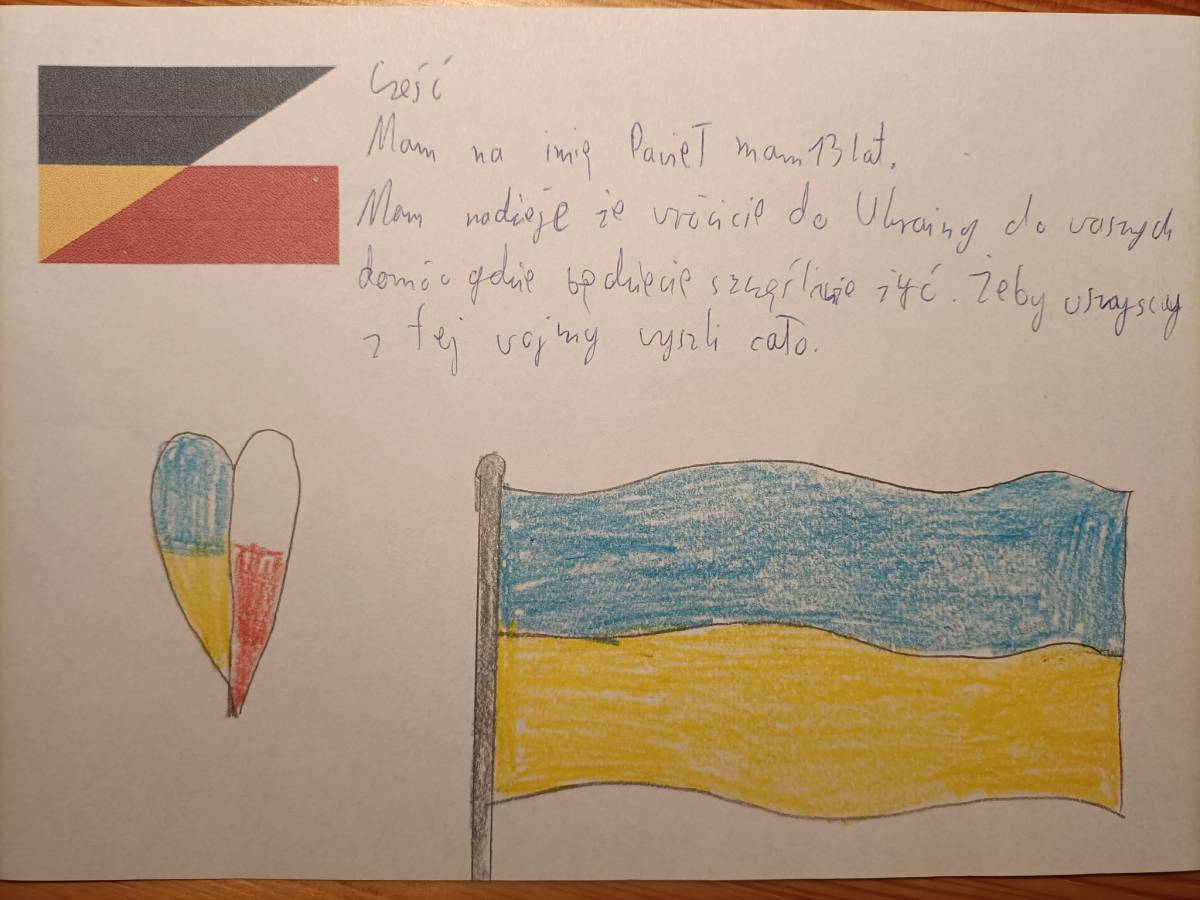 Cześć
Mam na imię Paweł mam 13 lat.
Mam nadzieję że wrócicie do Ukrainy do waszych
domów gdzie będziecie szczęśliwie żyć. Żeby wszyscy
z tej wojny wyszli cało.